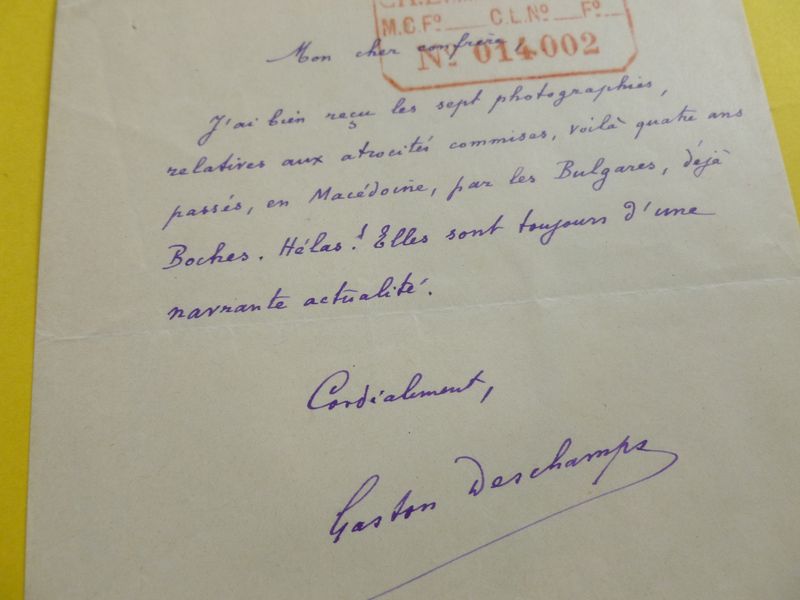 M.C.Fº C.L.Nº Fº
Nº 014002
Mon cher confrère,
J'ai bien reçu les sept photographies,
relatives aux atrocités commises, voilà quatre ans
passés, en Macédoine, par les Bulgares, déjà
Boches. Hélas! Elles sont toujours d'une
navrante actualité.
Cordialement,
Gaston Deschamps